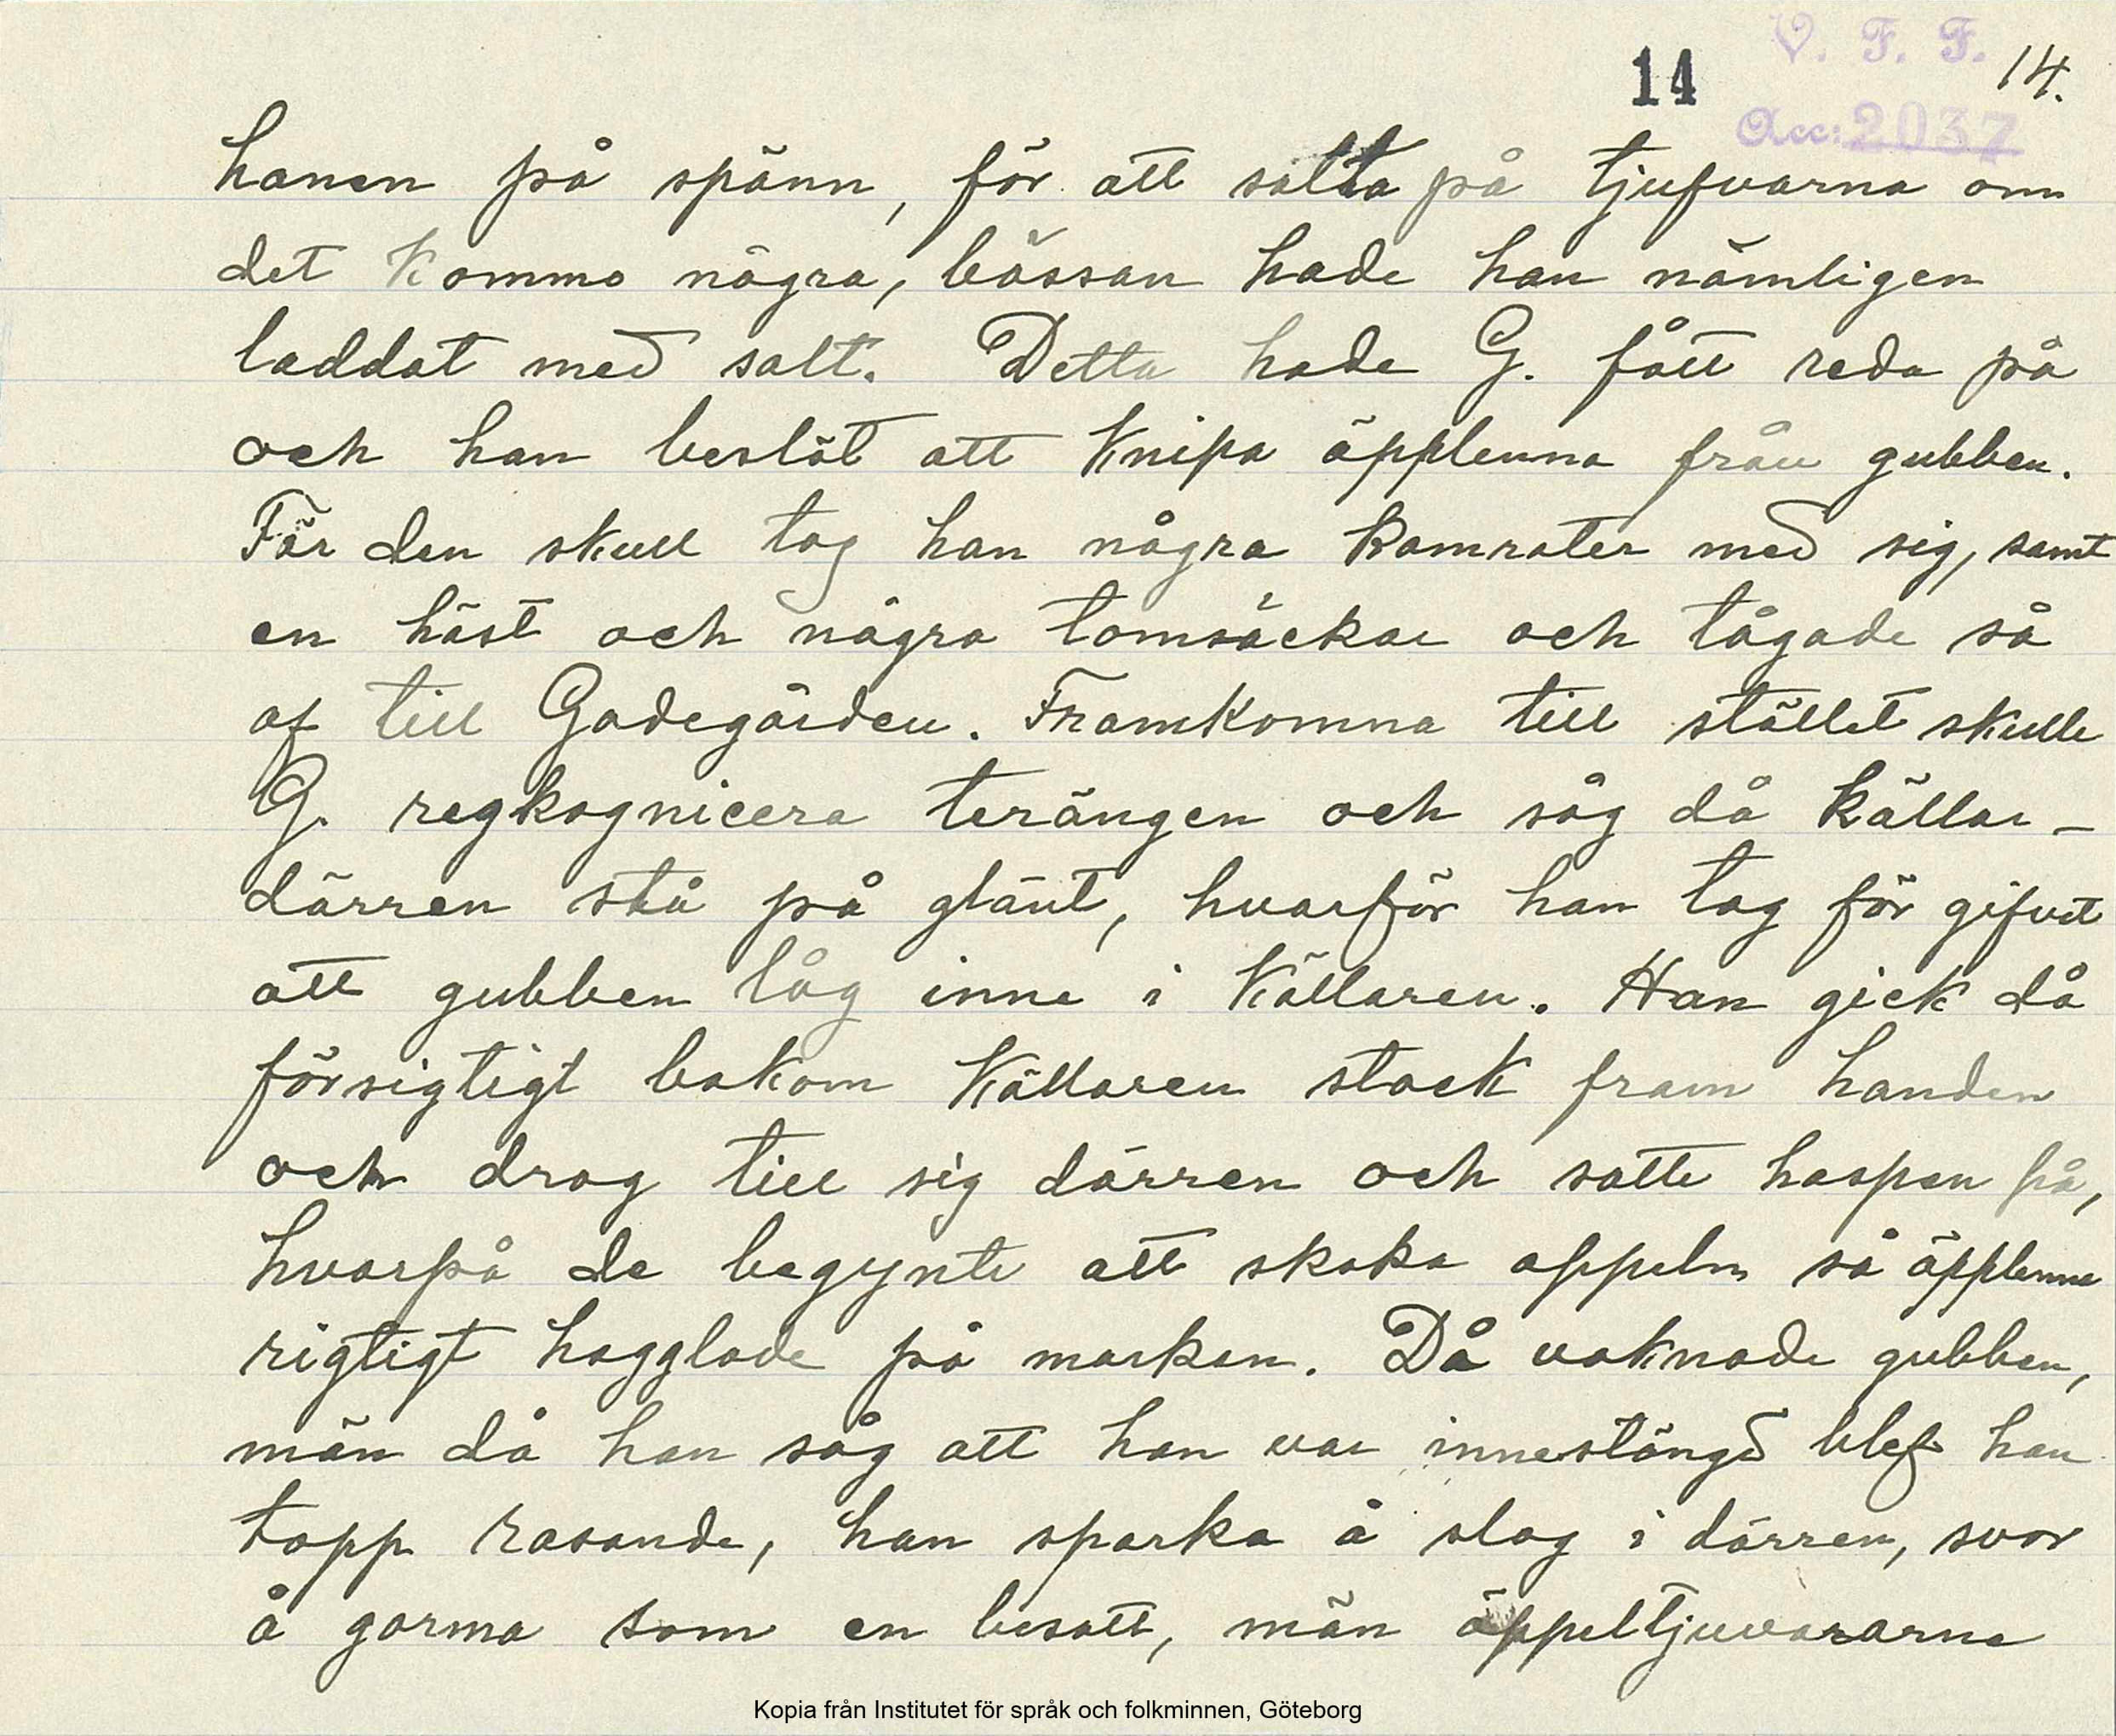 V. F. F.
14 14.
Acc: 2037
hanen på spänn, för att salta på tjufvarna om
det kommo några, bössan hade han nämligen
laddat med salt. Detta hade G. fått reda på
och han beslöt att knipa äpplenna från gubben.
För den skull tog han några kamrater med sig, samt
en häst och några tomsäckar och tågade så
af till Gadegården. Framkomna till stället skulle
G. regkognicera terängen och såg då källar-
dörren stå på glänt, hvarför han tog för gifvet
att gubben låg inne i källaren. Han gick då
försigtigt bakom källaren stack fram handen
och drog till sig dörren och satte haspen på,
hvarpå de begynte att skaka appeln så äpplenna
rigtigt hagglade på marken. Då vaknade gubben,
män då han såg att han var innestängd blef han
topp rasande, han sparka å slog i dörren, svor
å gorma som en besatt, män äppeltjuvararna
Kopia från Institutet för språk och folkminnen, Göteborg